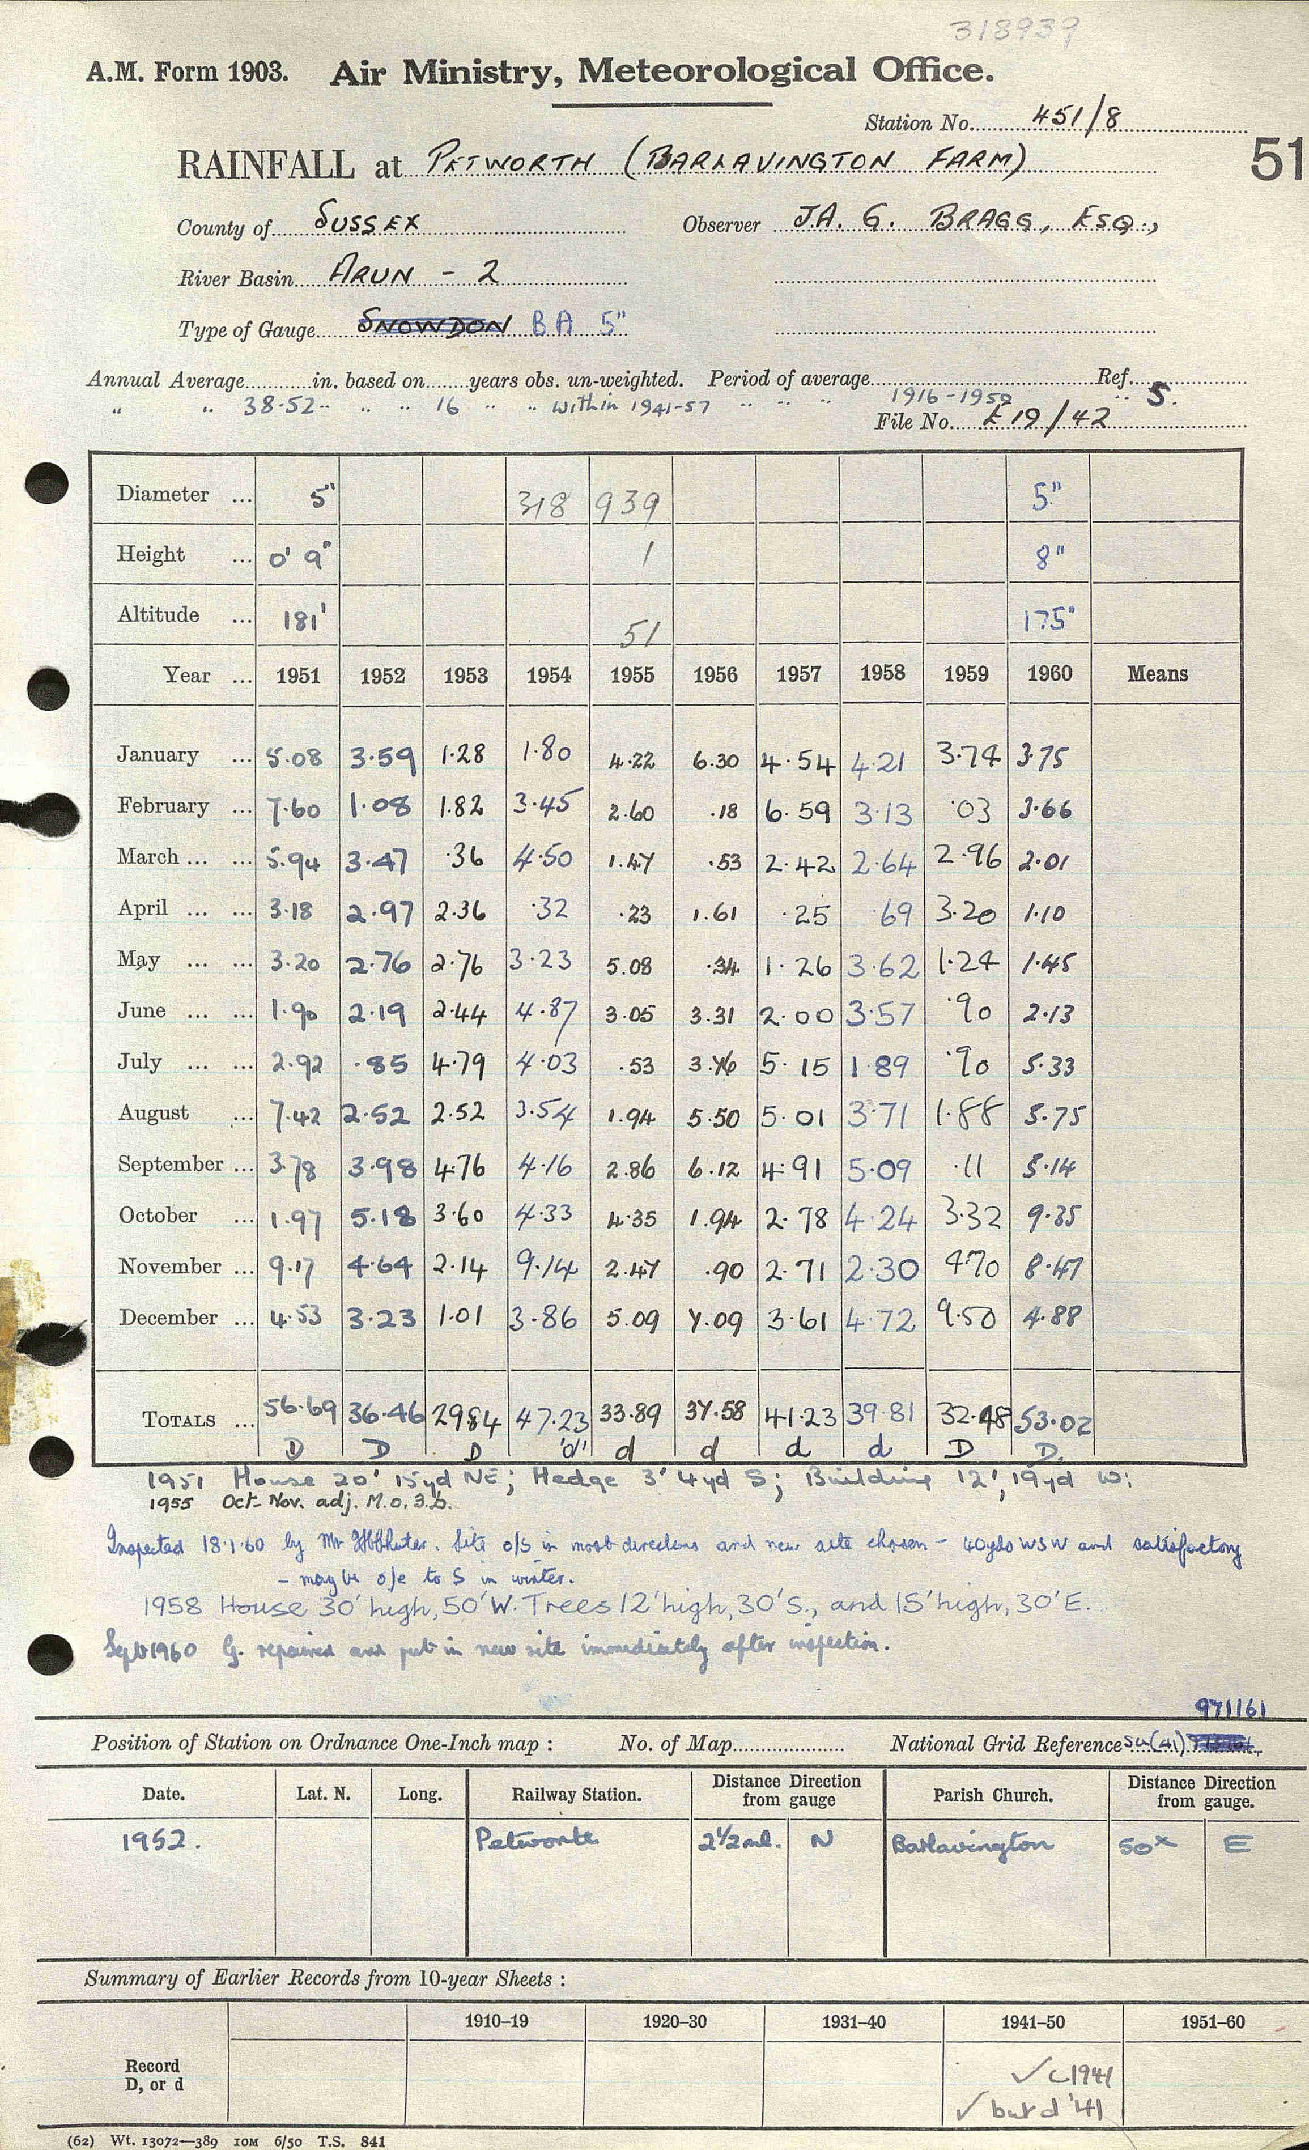 318939
A.M. Form 1903. Air Ministry, Meteorological Office.
Station No. 451/8
51
RAINFALL at PETWORTH (BARLAVINGTON FARM)
County of SUSSEX Observer J.A. G. BRAGG, ESQ.,
River Basin ARUN - 2
Type of Gauge SNOWDON BA 5"
Annual Average in. based on years obs. un-weighted. Period of average Ref.
" " 38·52 " " " 16 " " " within 1941-57 " " " 1916-1950 " S.
File No. E19/42
Diameter ... 5" 318 939 5"
Height ... 0' 9" 1 8"
Altitude ... 181' 51 175"
Year ... 1951 1952 1953 1954 1955 1956 1957 1958 1959 1960 Means
January ... 5·08 3·59 1·28 1·80 4·22 6·30 4·54 4·21 3·74 3·75
February ... 7·60 1·08 1·82 3·45 2·60 ·18 6·59 3·13 ·03 3·66
March ... ... 5·94 3·47 ·36 4·50 1·47 ·53 2·42 2·64 2·96 2·01
April ... ... 3·18 2·97 2·36 ·32 ·23 1·61 ·25 ·69 3·20 1·10
May ... ... 3·20 2·76 2·76 3·23 5·08 ·34 1·26 3·62 1·24 1·45
June ... ... 1·90 2·19 2·44 4·87 3·05 3·31 2·00 3·57 ·90 2·13
July ... ... 2·92 ·85 4·79 4·03 ·53 3·76 5·15 1·89 ·90 5·33
August ... 7·42 2·52 2·52 3·54 1·94 5·50 5·01 3·71 1·88 5·75
September ... 3·78 3·98 4·76 4·16 2·86 6·12 4·91 5·09 ·11 5·14
October ... 1·97 5·18 3·60 4·33 4·35 1·94 2·78 4·24 3·32 9·35
November ... 9·17 4·64 2·14 9·14 2·47 ·90 2·71 2·30 4·70 8·47
December ... 4·53 3·23 1·01 3·86 5·09 7·09 3·61 4·72 9·50 4·88
TOTALS ... 56·69 36·46 29 84 47·23 33·89 37·58 41·23 39·81 32·48 53·02
D D D 'd' d d d d D D.
1951 House 20' 15yd NE; Hedge 3' 4yd S; Building 12', 19yd W;
1955 Oct-Nov. adj. M.O.3.b.
Inspected 18·1·60 by Mr Site o/s in most directions and new site chosen - 40yds WSW and satisfactory
- may be o/e to S in winter.
1958 House 30' high, 50' W. Trees 12' high, 30' S., and 15' high, 30' E.
Sept 1960 G. repaired and put in new site immediately after inspection.
971161
Position of Station on Ordnance One-Inch map : No. of Map National Grid Reference SU(41)
Date. Lat. N. Long. Railway Station. Distance Direction from gauge Parish Church. Distance Direction from gauge.
1952. Petworth 2½ml. N Barlavington 50x E
Summary of Earlier Records from 10-year Sheets :
1910–19 1920–30 1931–40 1941–50 1951–60
Record
D, or d
✓ c1941
✓ but d '41
(62) Wt. 13072—389 10M 6/50 T.S. 841